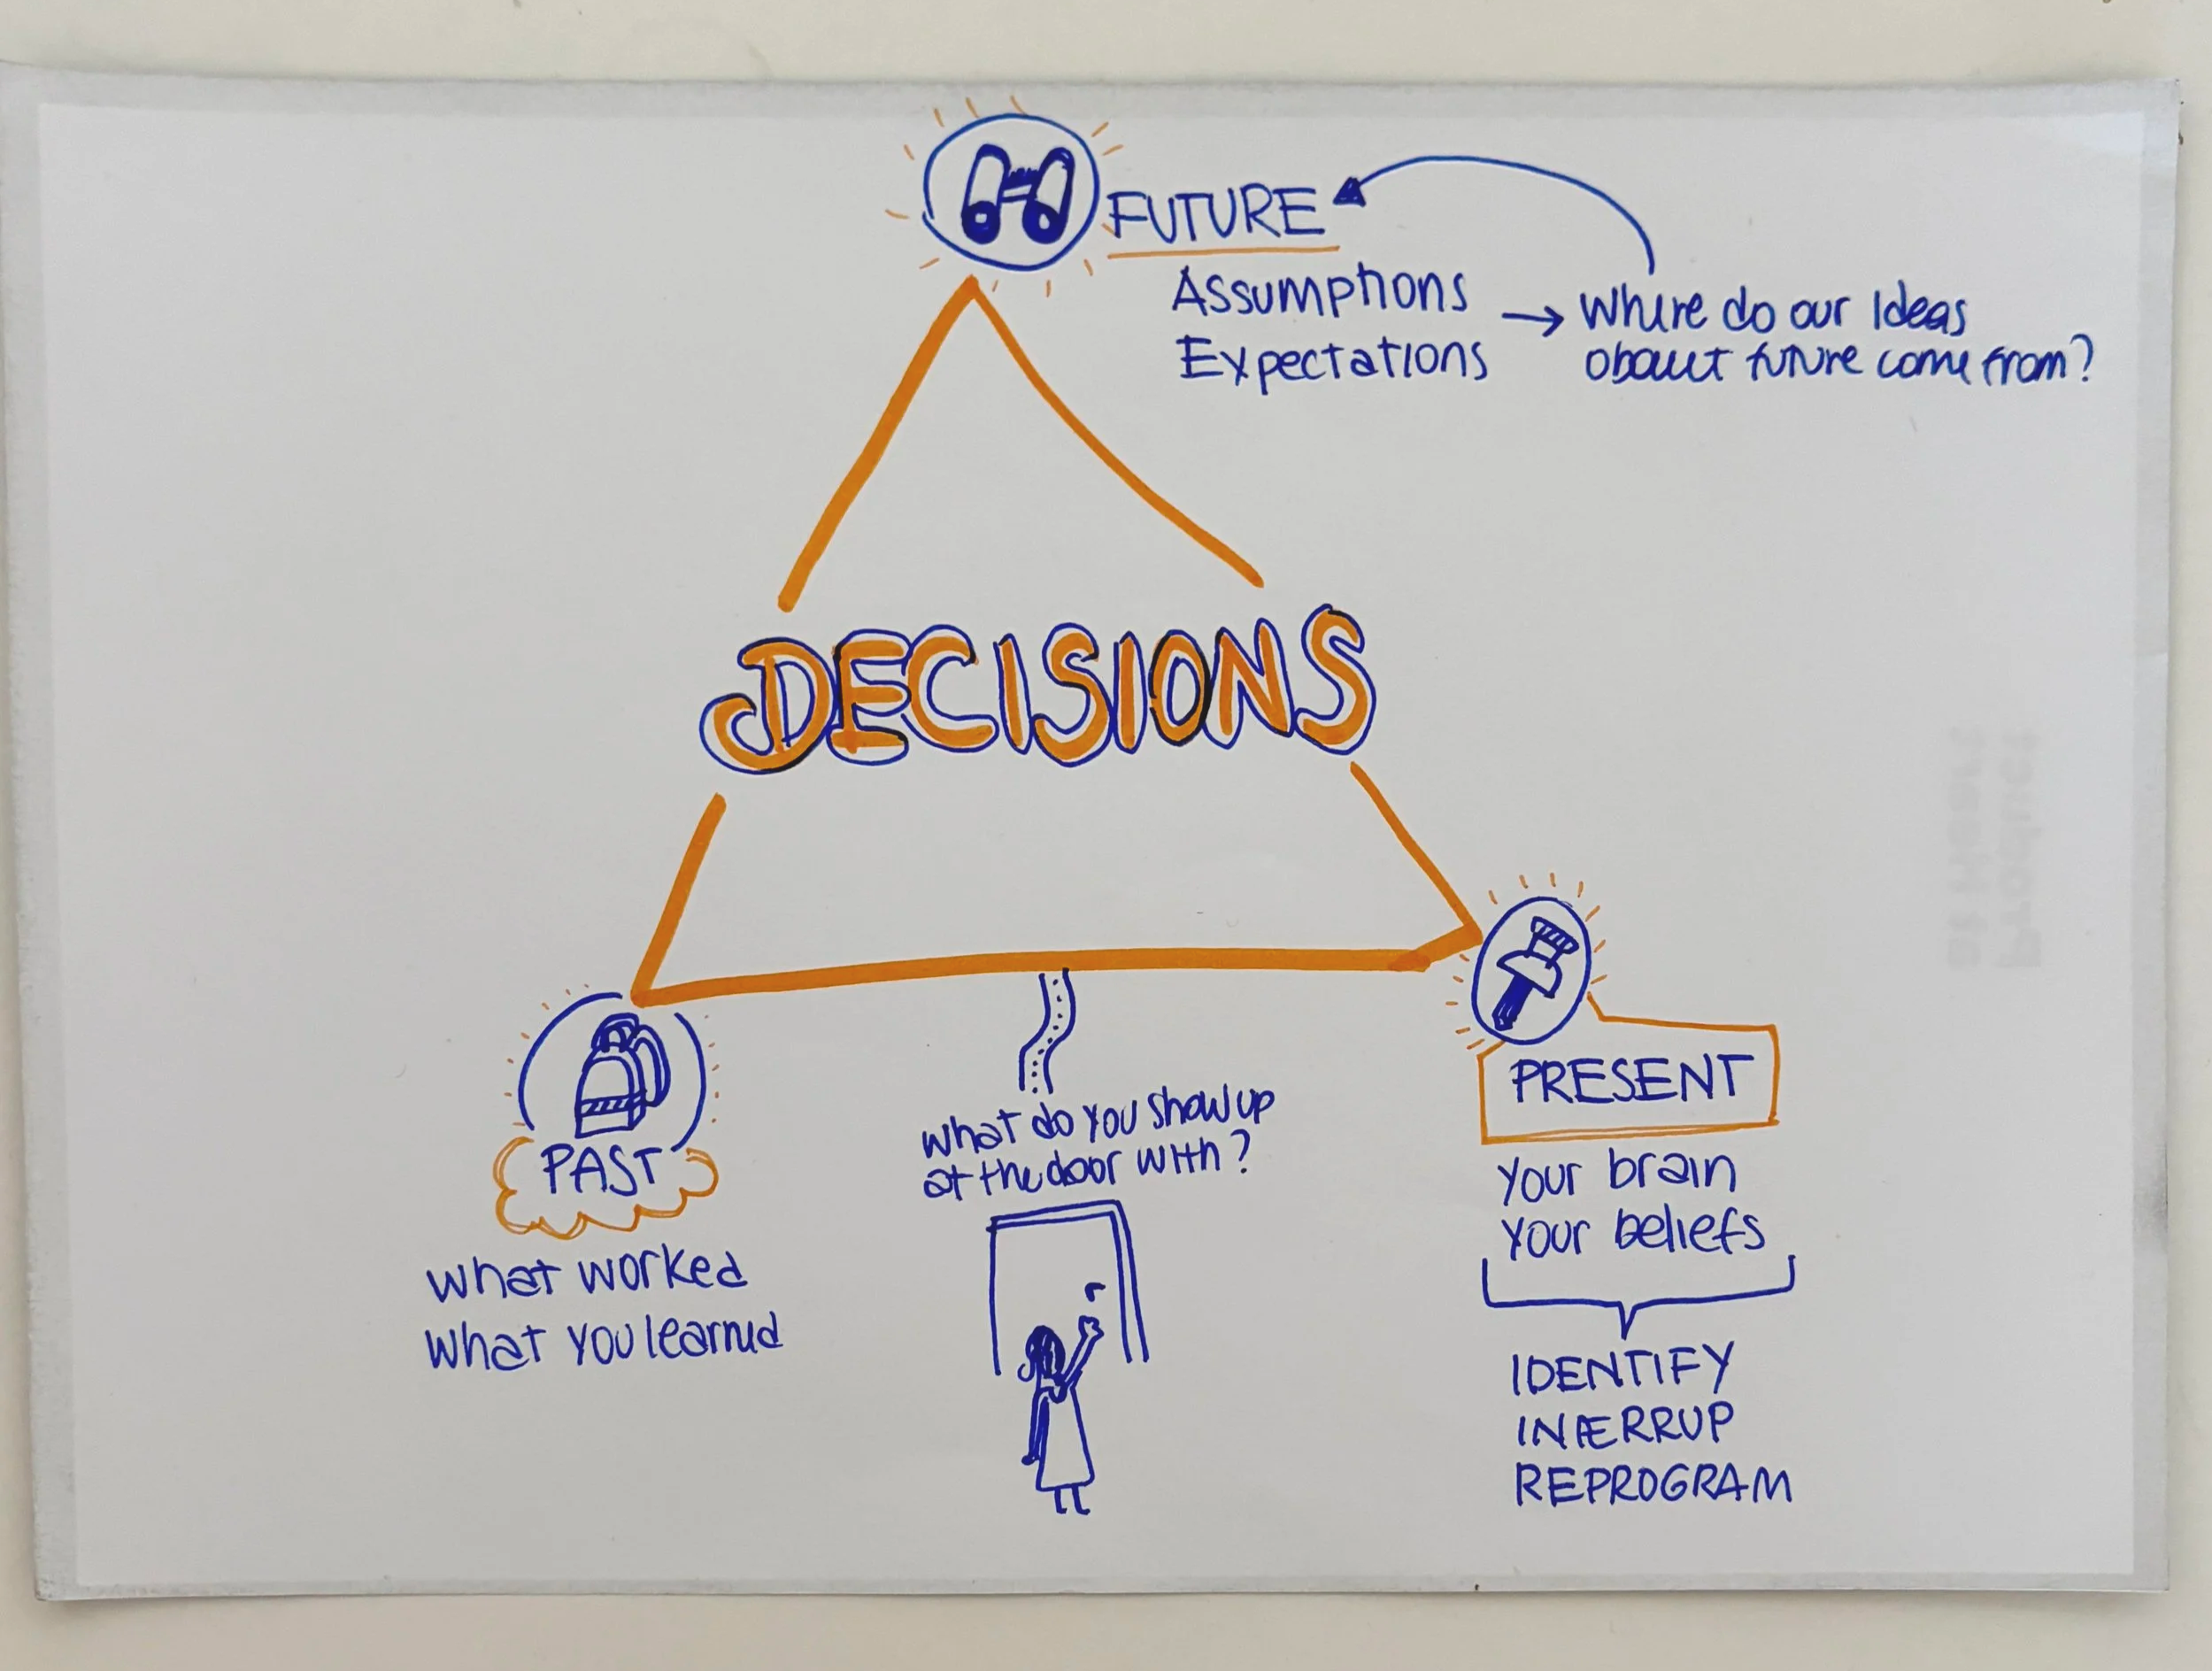 FUTURE
Assumptions
Expectations
Where do our Ideas
about future come from?
DECISIONS
PAST
What worked
What you learned
What do you show up
at the door with?
PRESENT
Your brain
Your beliefs
IDENTIFY
INTERRUP
REPROGRAM
Product
at Heart